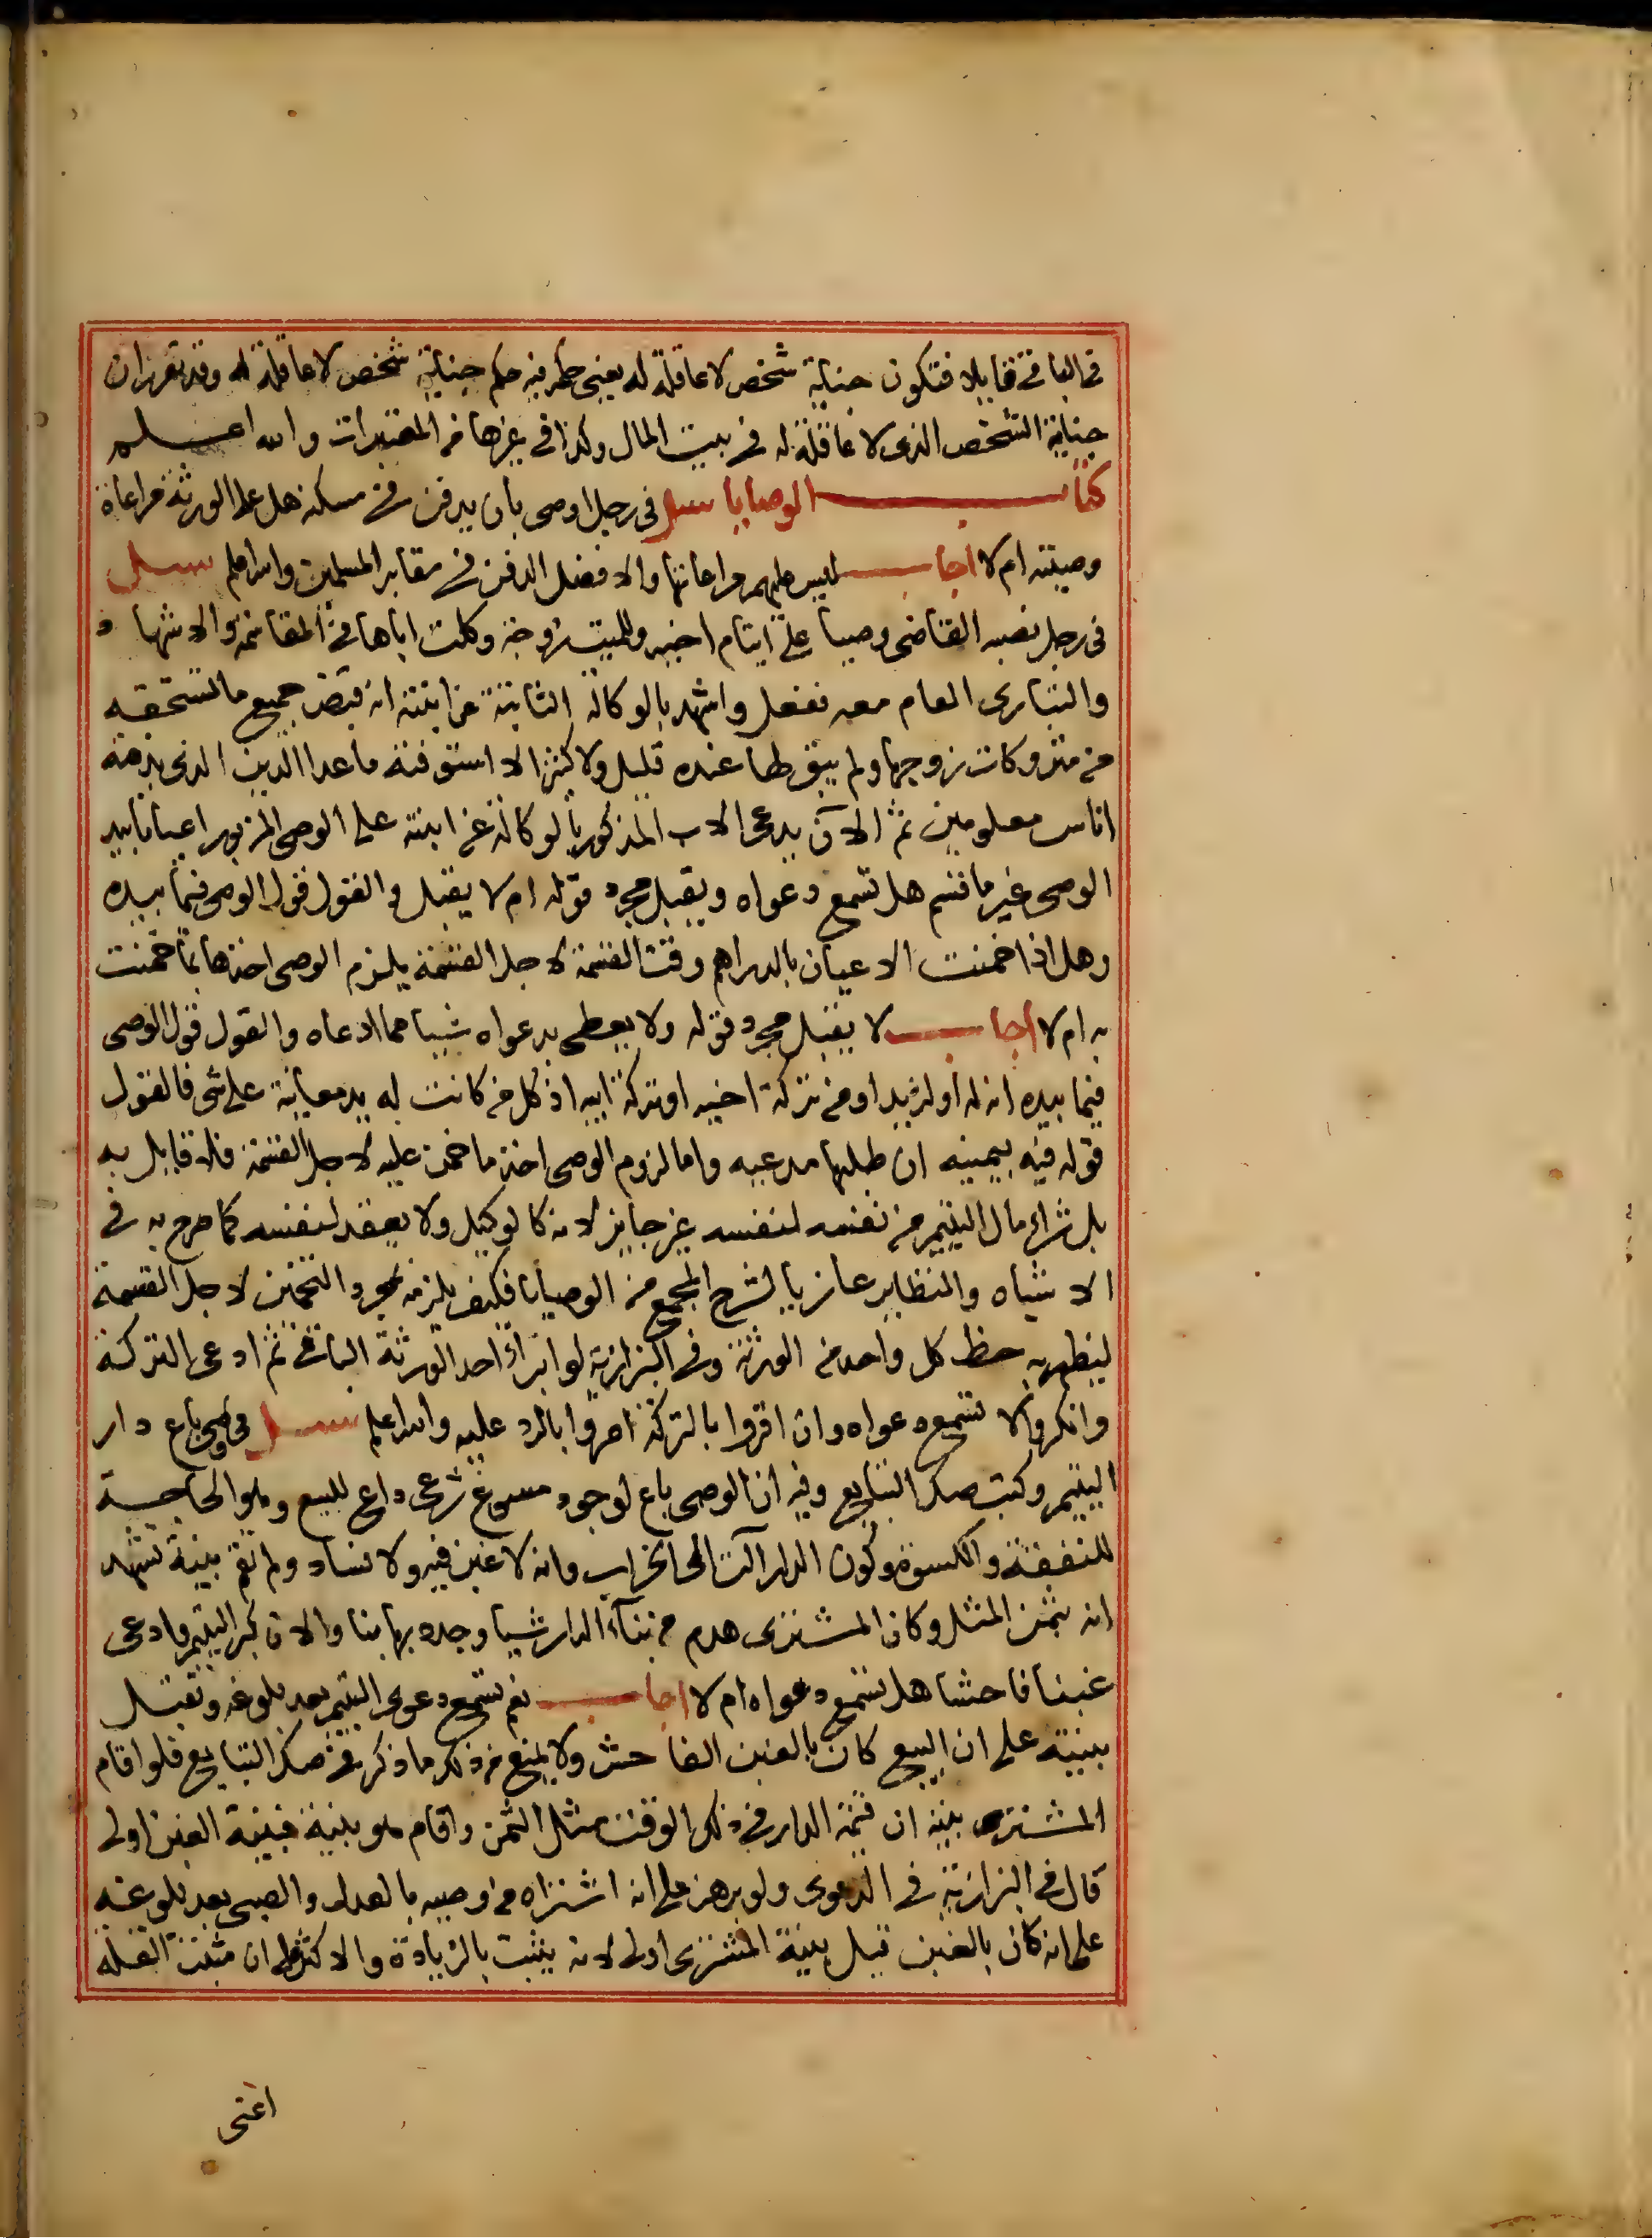 في الباقي قابلا فتكون جناية شخص لا عاقلة له يعني حكمه فيه حكم جناية شخص لا عاقلة له وقد تقرر ان
جناية الشخص الذى لا عاقلة له في بيت المال وكذا في غيرها من المعتبرات والله اعلم
كتاب الوصايا سئل فى رجل اوصى بان يدفن في مسكنه هل على الورثة مراعاة
وصيته ام لا اجاب ليس عليهم مراعاتها والافضل الدفن في مقابر المسلمين والله اعلم سئل
فى رجل نصبه القاضى وصيا على ايتام اخيه وللميت زوجة وكلت اباها في المقاسمة والاشهاد
والتبارى العام معه ففعل واشهد بالوكالة الثابتة عن ابنته انه قبض جميع ما تستحقه
من متروكات زوجها ولم يبق لها عنده قليل ولا كثير الا استوفته ماعدا الدين الذى بذمة
اناس معلومين ثم الآن يدعى الاب المذكور بالوكالة عن ابنته على الوصى المزبور اعيانا بيد
الوصى غير ما قسم هل تسمع دعواه ويقبل مجرد قوله ام لا يقبل والقول قول الوصى فيما بيده
وهل اذا خمنت الاعيان بالدراهم وقت القسمة لاجل القسمة يلزم الوصى اخذها بما خمنت
به ام لا اجاب لا يقبل مجرد قوله ولا يعطى بدعواه شيئا مما ادعاه والقول قول الوصى
فيما بيده انه له او لزيد او من تركة اخيه او تركة ابيه اذ كل من كانت له يد معاينة على شى فالقول
قوله فيه بيمينه ان طلبها مدعيه واما لزوم الوصى اخذ ما خمن عليه لاجل القسمة فلا قايل به
بل شراء مال اليتيم من نفسه لنفسه غير جايز لانه كالوكيل ولا يعقد لنفسه كما صرح به في
الاشباه والنظاير عازيا لشرح المجمع من الوصايا فكيف يلزمه بمجرد التخمين لاجل القسمة
ليظهر به حظ كل واحد من الورثة وفي البزازية لو ابراء احد الورثة الباقي ثم ادعى التركة
وانكروا لا تسمع دعواه وان اقروا بالتركة امروا بالرد عليه والله اعلم سئل في وصى باع دار
اليتيم وكتب صك التبايع وفيه ان الوصى باع لوجود مسوغ شرعى داعى للبيع وهو الحاجة
للنفقة والكسوة وكون الدار آلت الى الخراب وانه لا غبن فيه ولا فساد ولم تقم بينة تشهد
انه بثمن المثل وكان المشترى هدم من بناء الدار شيا وجدد بها بنا والان كبر اليتيم وادعى
غبنا فاحشا هل تسمع دعواه ام لا اجاب نعم تسمع دعوى اليتيم بعد بلوغه وتقبل
بينته على ان البيع كان بالغبن الفاحش ولا يمنع من ذلك ما ذكر في صك التبايع فلو اقام
المشترى بينة ان قيمة الدار في ذلك الوقت مثل الثمن واقام هو بينة فبينة الغبن اولى
قال في البزازية في الدعوى ولو برهن على انه اشتراه من وصيه بالعدل والصبى بعد بلوغه
على انه كان بالغبن قيل بينة المشترى اولى لانه يثبت بالزيادة والاكثر على ان مثبت القلة
اعنى